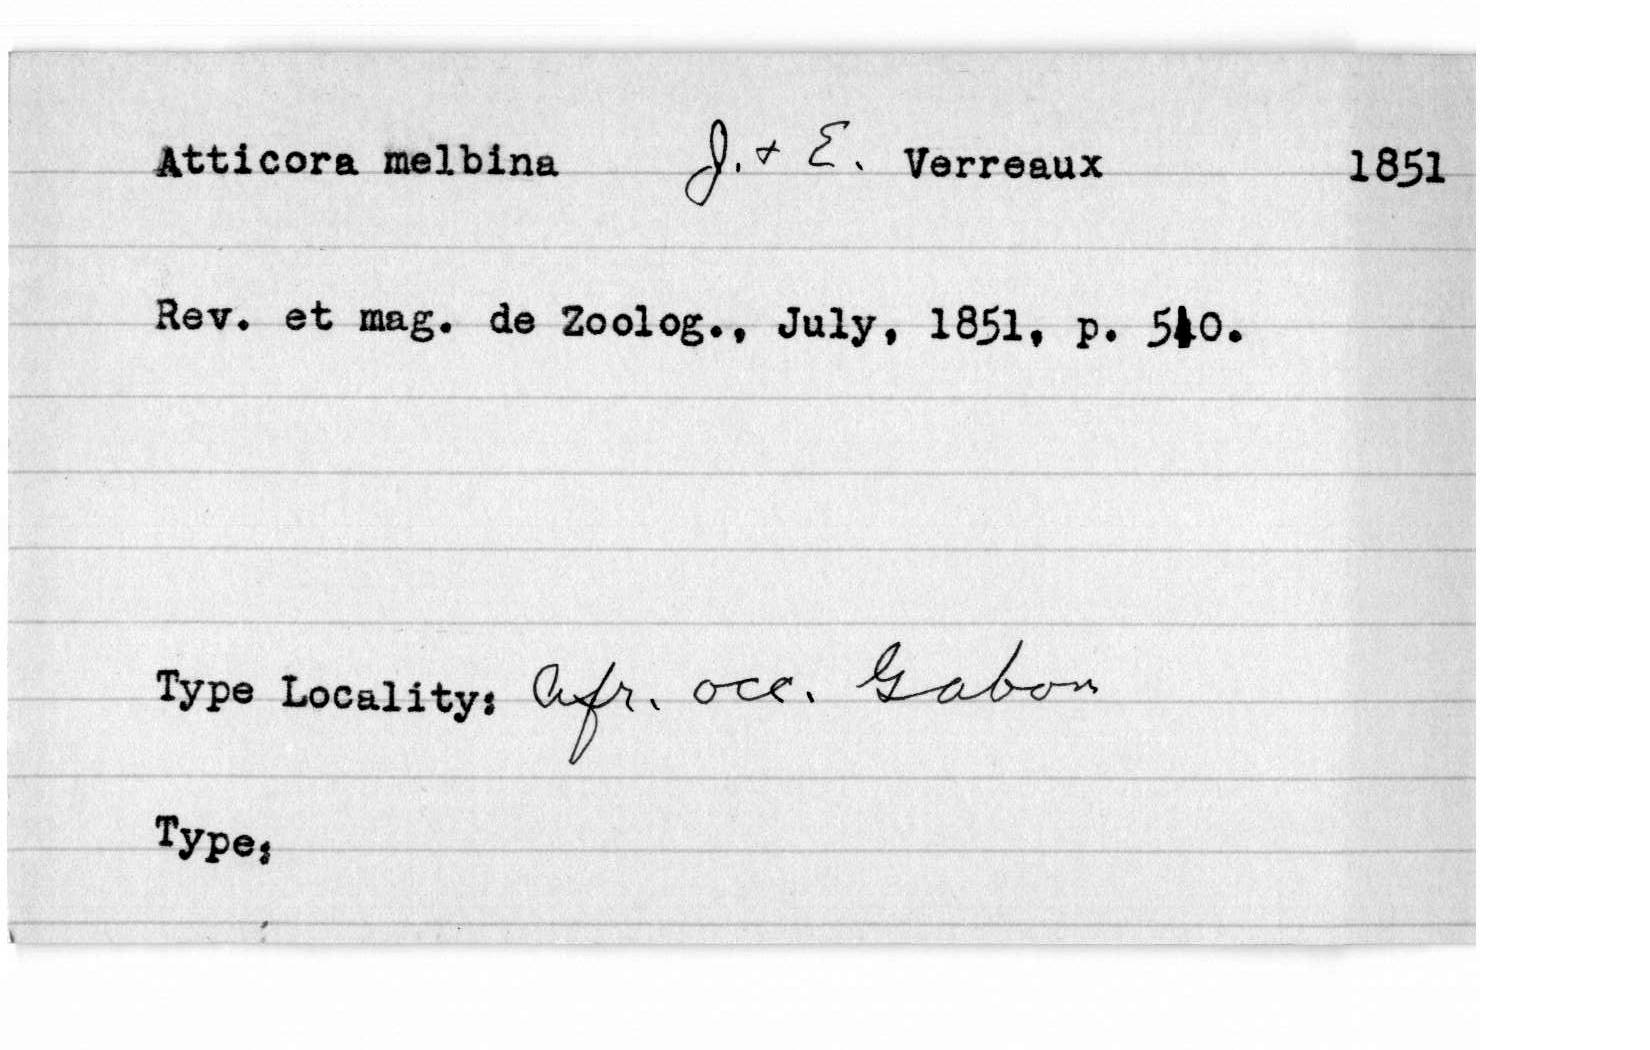 Atticora melbina J. + E. Verreaux 1851
Rev. et mag. de Zoolog., July, 1851, p.
Type Locality: Afr. occ. Gabon
Type: